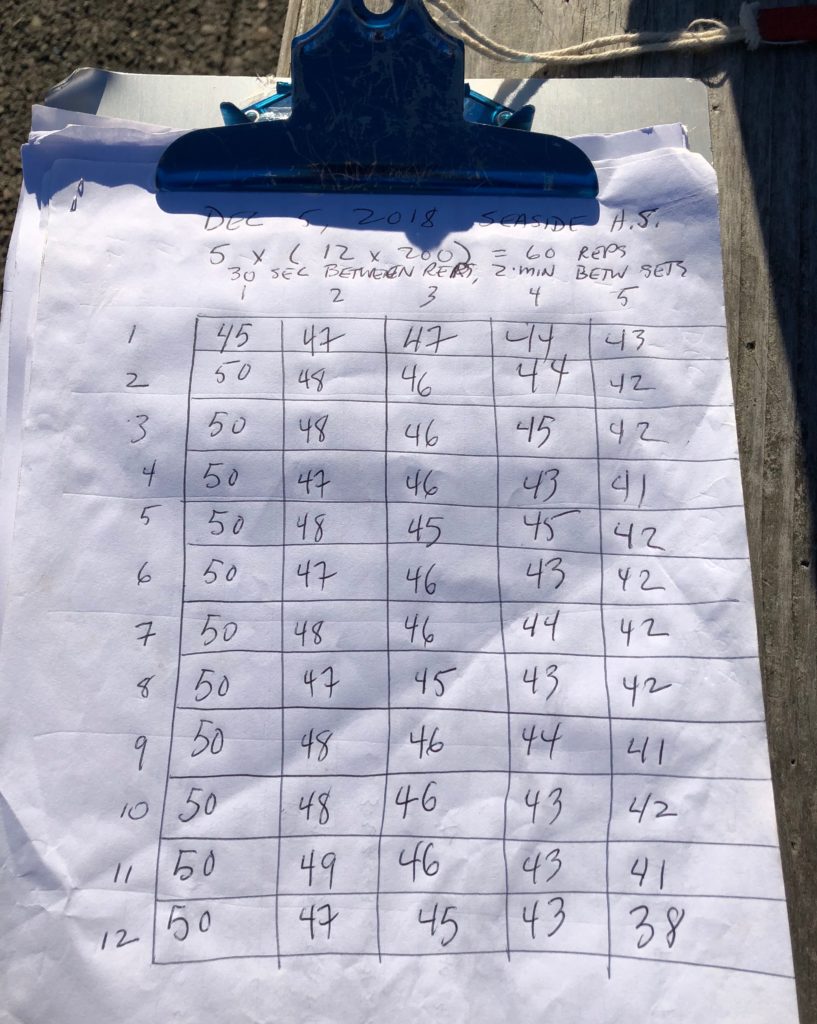 DEC 5, 2018 SEASIDE H.S.
5 x (12 x 200) = 60 REPS
30 SEC BETWEEN REPS, 2 MIN BETW SETS
1 2 3 4 5
1 45 47 47 44 43
2 50 48 46 44 42
3 50 48 46 45 42
4 50 47 46 43 41
5 50 48 45 45 42
6 50 47 46 43 42
7 50 48 46 44 42
8 50 47 45 43 42
9 50 48 46 44 41
10 50 48 46 43 42
11 50 49 46 43 41
12 50 47 45 43 38